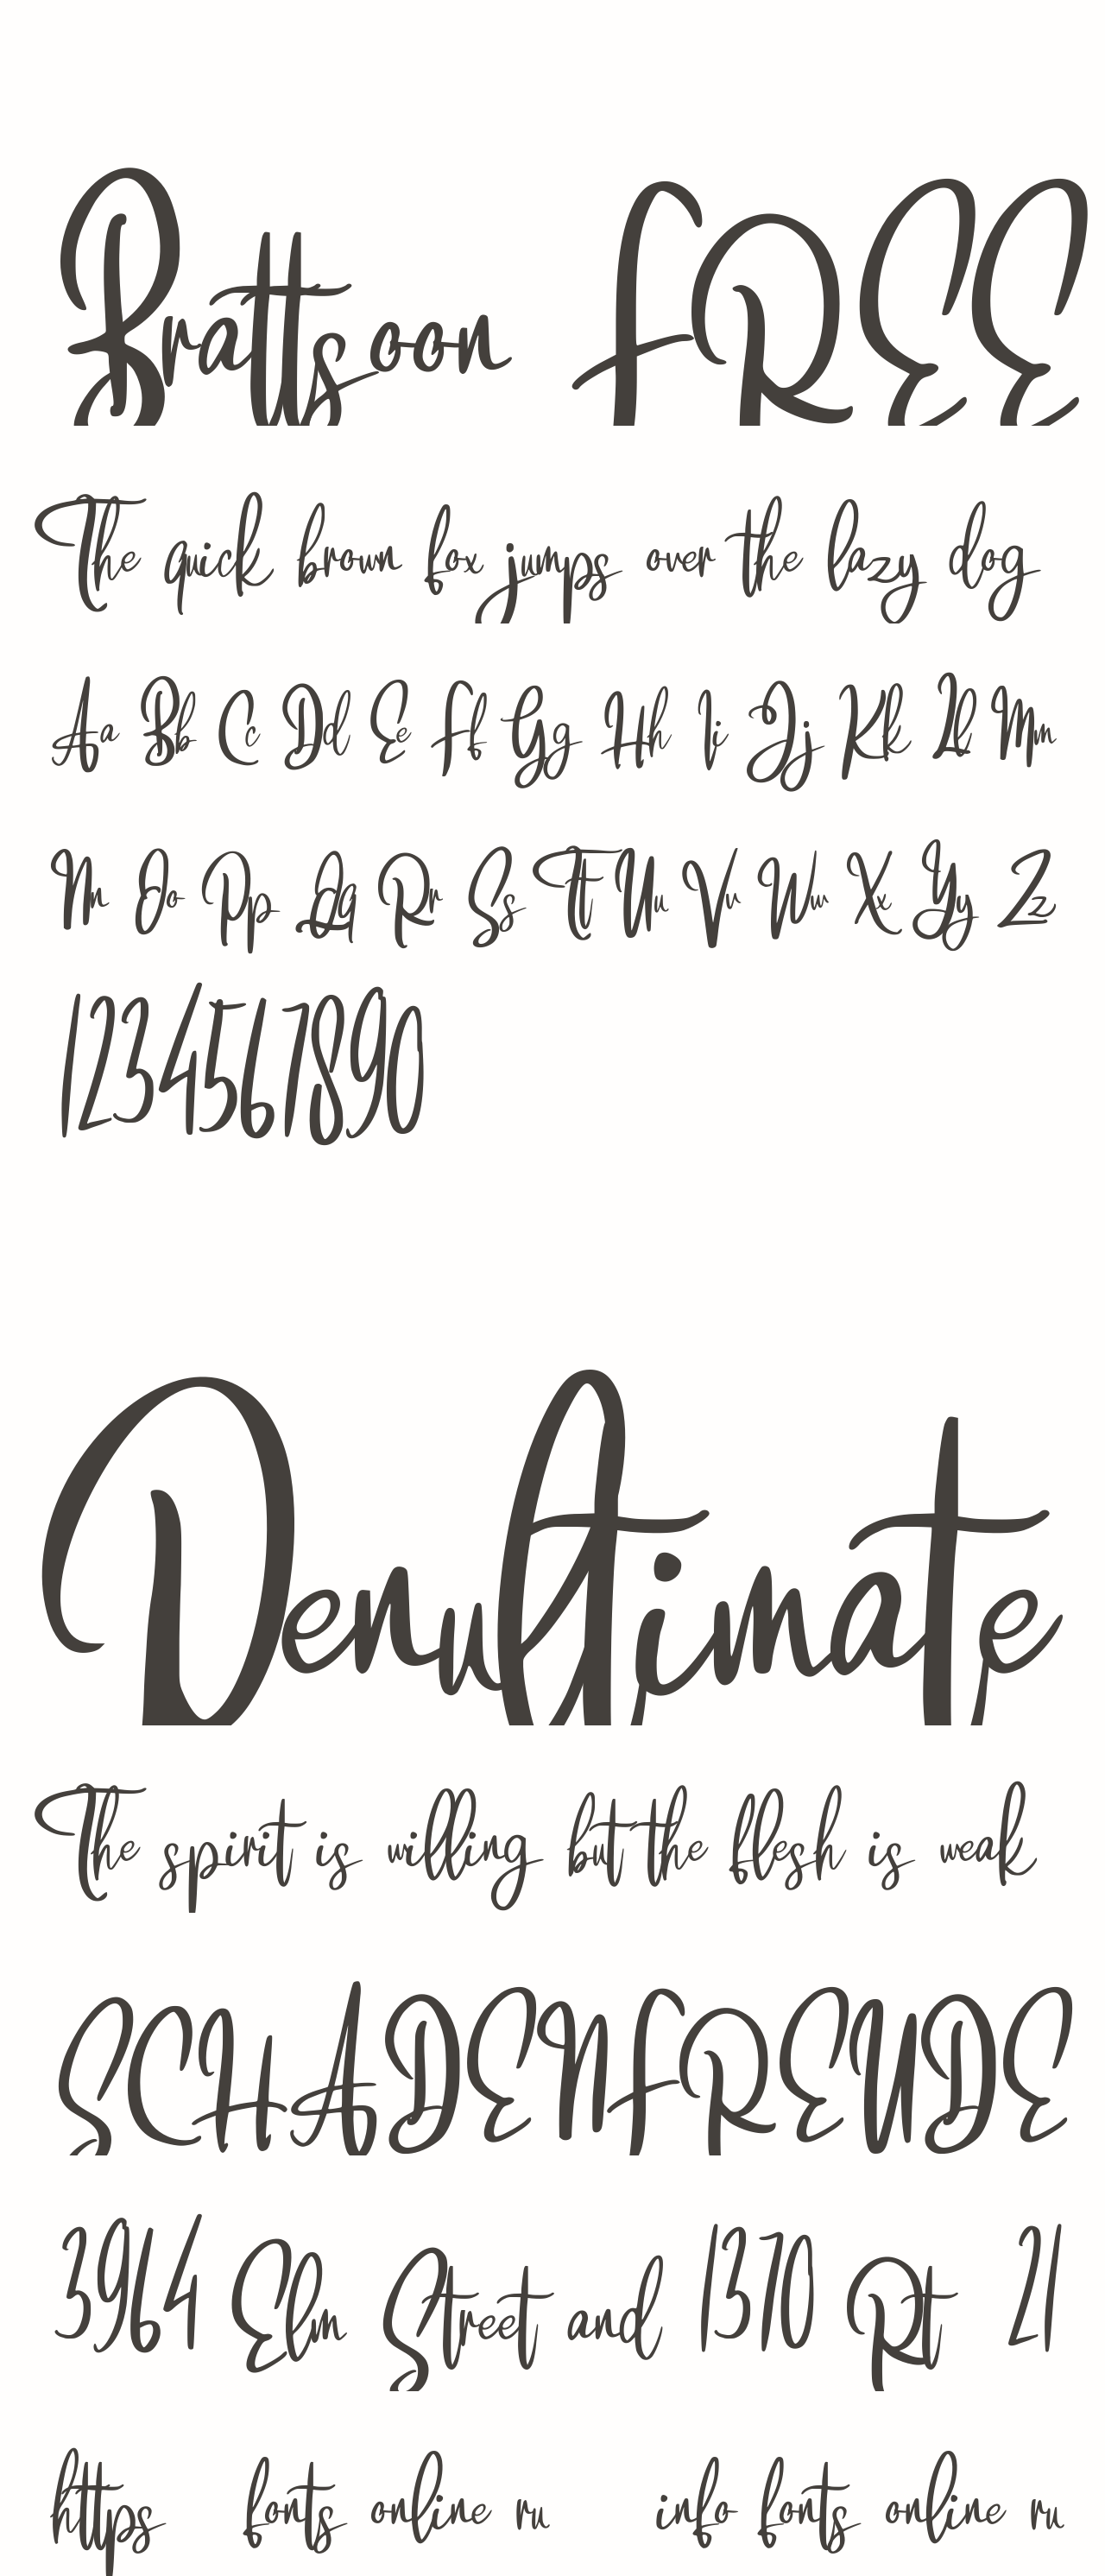 Brattsoon FREE
The quick brown fox jumps over the lazy dog
Aa Bb Cc Dd Ee Ff Gg Hh Ii Jj Kk Ll Mm
Nn Oo Pp Qq Rr Ss Tt Uu Vv Ww Xx Yy Zz
1234567890
Denultimate
The spirit is willing but the flesh is weak
SCHADENFREUDE
3964 Elm Street and 1370 Rt 21
https fonts online ru info fonts online ru